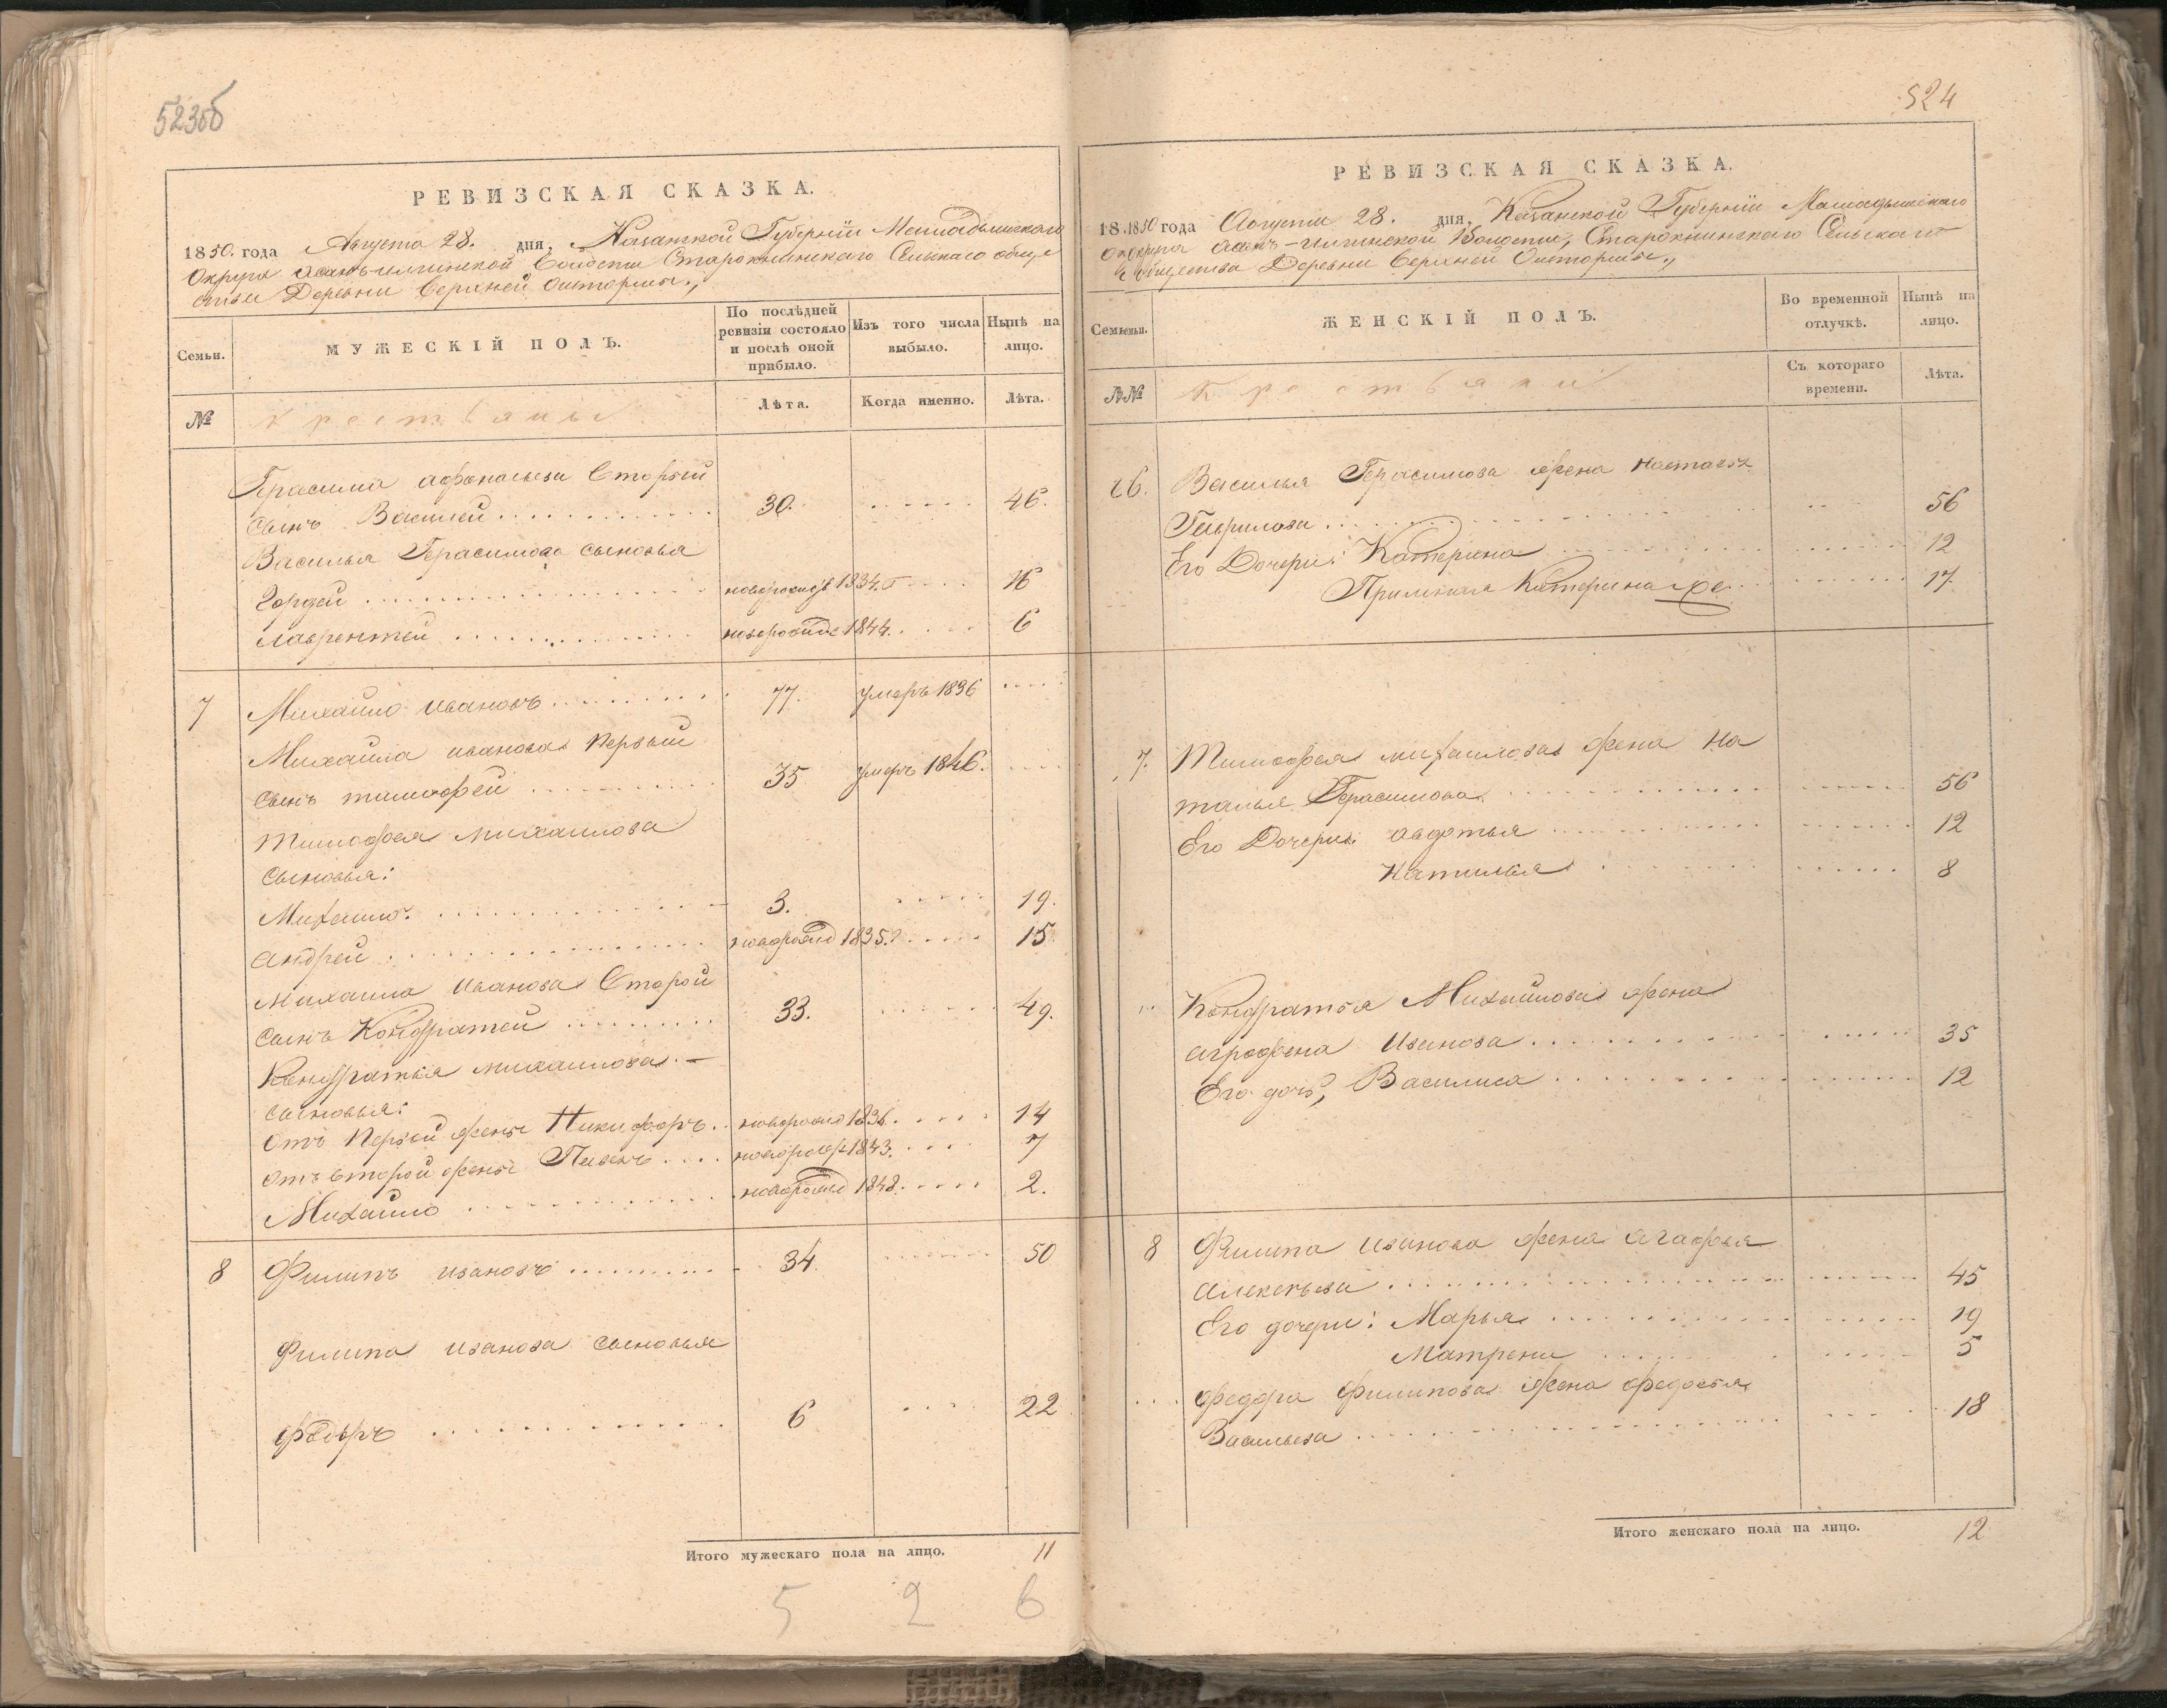 523об
РЕВИЗСКАЯ СКАЗКА.
1850. года Августа 28. дня, Казанской Губерніи Мамадышскаго
Округа Асанъ-илгинской Волости Старокнинскаго Сельскаго обще
ства Деревни Верхней Ошторми.,
Семьи.
МУЖЕСКІЙ ПОЛЪ.
По послѣдней ревизіи состояло и послѣ оной прибыло.
Изъ того числа выбыло.
Нынѣ на лицо.
№
крестьяны
Лѣта.
Когда именно.
Лѣта.
Герасима Афонасьева Вторый
сынъ Василей 30. 46.
Василья Герасимова сыновья
Гордей 1834. 16
Лаврентей 1844. 6
7 Михайло Ивановъ 77. умеръ 1836
Михайла Иванова Первый
сынъ тимофей 35 умеръ 1846.
Тимофея михаилова
сыновья:
Михаило. 3. 19.
Андрей 1835. 15
Михаила Иванова Второй
сынъ Кондратей 33. 49.
Кондратья михаилова.
сыновья:
Отъ Первой жены Никифоръ 1836. 14
Отъ второй жены 1843. 7
Михаило 1848. 2.
8 Филипъ Ивановъ 34. 50
Филипа Иванова сыновья
Федоръ 6 22
Итого мужескаго пола на лицо. 11
5 2 6
524
РЕВИЗСКАЯ СКАЗКА.
18.1850 года Августа 28. дня, Казанской Губерніи Мамадышскаго
Округа Асанъ-илгинской Волости, Старокнинскаго Сельскаго
общества Деревни Верхней Ошторми.,
Семьи.
ЖЕНСКІЙ ПОЛЪ.
Во временной отлучкѣ.
Нынѣ на лицо.
№№
Крестьянки
Съ котораго времени.
Лѣта.
6. Василья Герасимова жена Настасья
Гаврилова 56
Его Дочери: Катерина 12
Катерина же 17.
7. Тимофея михаилова жена На
талья Герасимова 56
Его Дочери: авдотья 12
Наталья 8
Кондратья Михайлова жена
агрофена Иванова 35
Его дочь, Василиса 12
8 Филипа Иванова жена агафья
алексеева 45
Его дочери: Марья 19
Матрена 5
Федора Филипова жена федосья
Васильева 18
Итого женскаго пола на лицо. 12